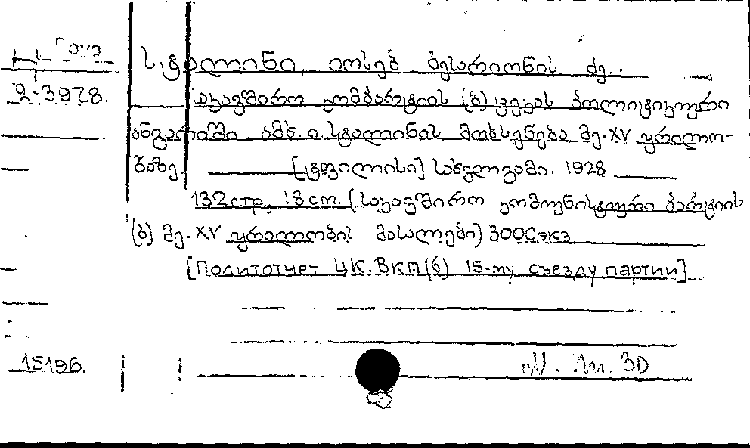 სტალინი, იოსებ ბესარიონის ძე.
2-3978.
საკავშირო კომპარტიის (ბ) ცეკას პოლიტიკური
ანგარიში ამხ. ი. სტალინის მოხსენება მე-XV ყრილო-
ბაზე. [ტფილისი] სახელგამი. 1928
132 стр. 18 cm. (საკავშირო კომუნისტიური პარტიის
(ბ) მე-XV ყრილობის მასალები) 3000 экз
[Политотчет ЦК. ВКП(б) 15-му съезду партии]
15196.